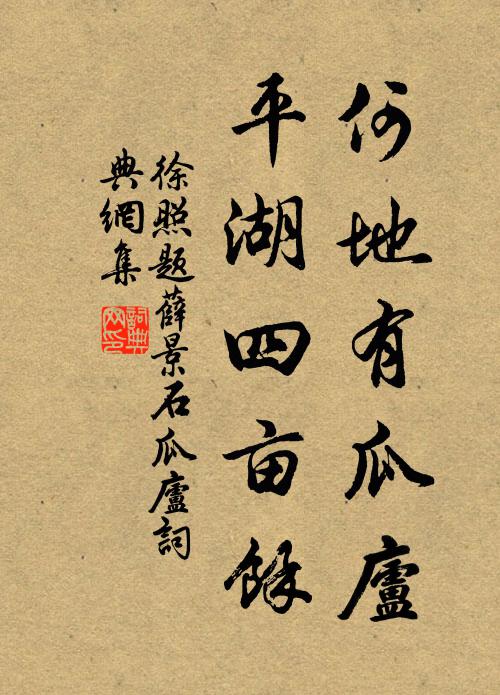 何地有瓜廬
平湖四亩餘
徐照题薛景石瓜廬詞
典網集
詞典
网印